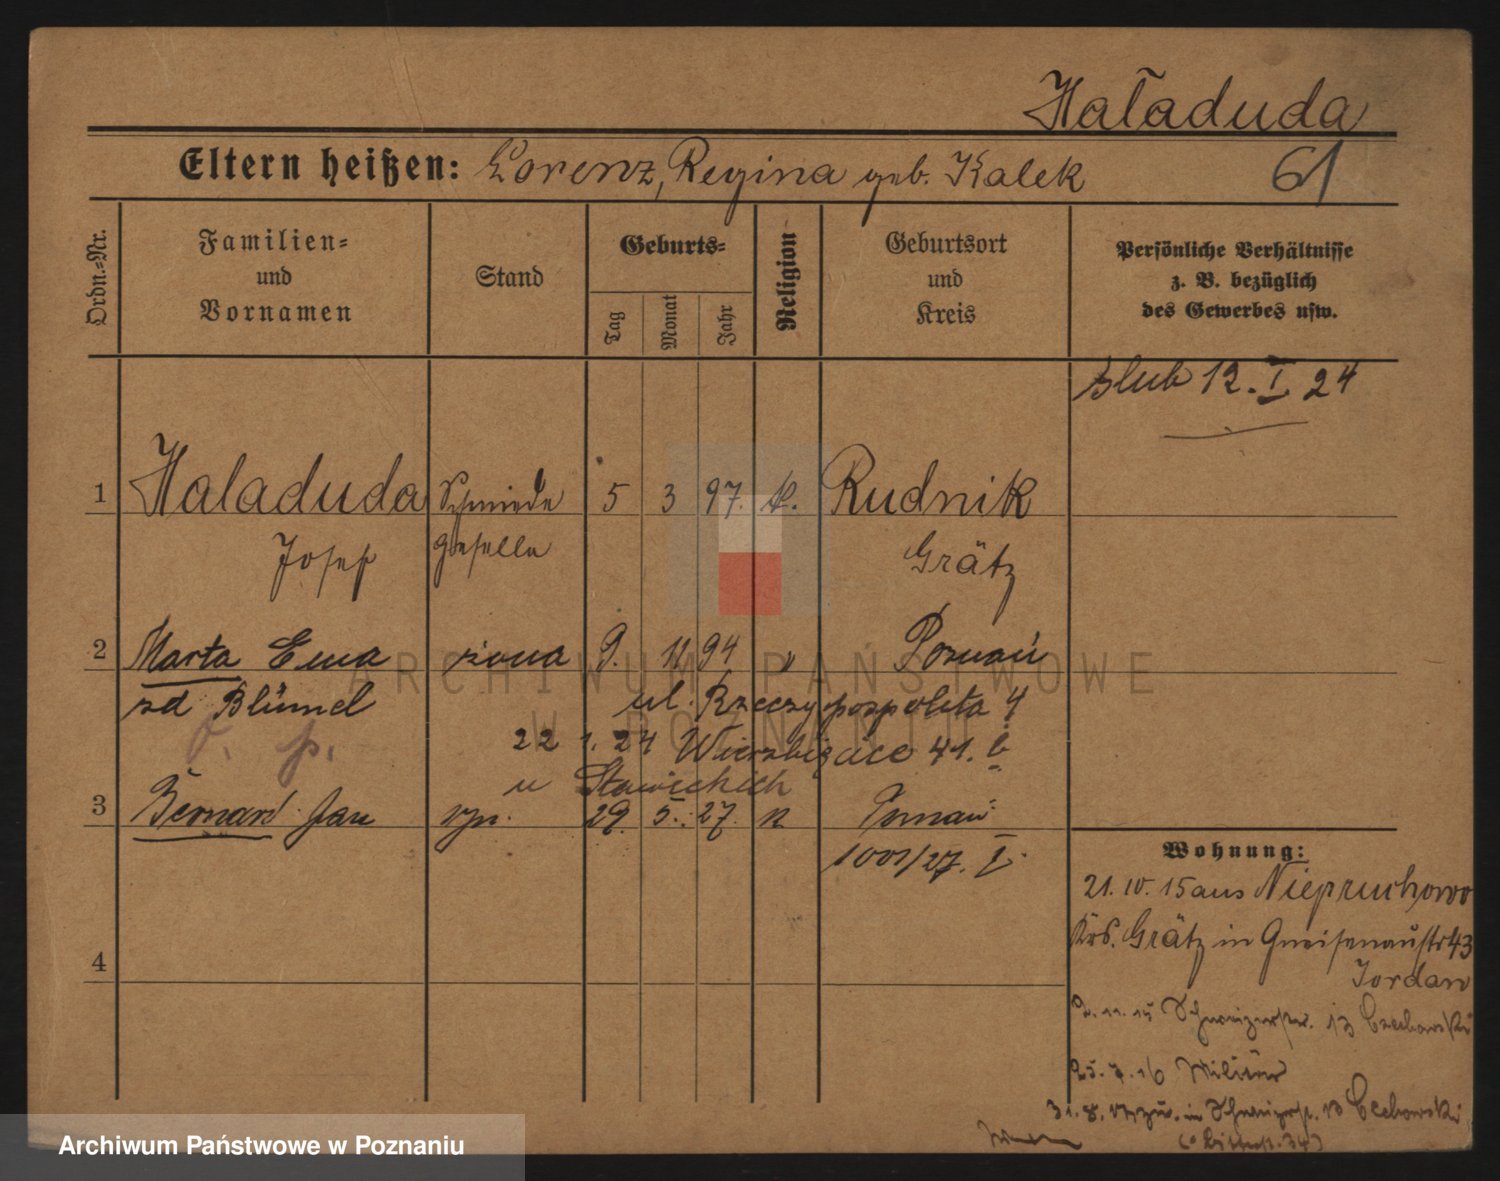 Haładuda
Eltern heißen: Lorenz, Regina geb. Kalek 61
Ordn.-Nr. Familien- und Vornamen Stand Geburts- Tag Monat Jahr Religion Geburtsort und Kreis Persönliche Verhältnisse z. B. bezüglich des Gewerbes usw.
ślub 12. I 24
1 Haladuda Schmiede 5 3 97. k. Rudnik
Josef geselle Grätz
2 Marta Ewa żona 9. 11 94 " Poznań
zd Blümel ul. Rzeczypospolita 4
22 1. 24 Wierzbięcice 41. b
u Stawickich
3 Bernard Jan syn. 29. 5. 27. k Poznań
1001/27. I.
Wohnung:
21. 10. 15 aus Niepruchowo
Krs. Grätz in Gneisenaustr 43
4
Jordan
2. 11. 15 13 Czechowski
25. 7. 16 Militär
31. 8. in 13 Czechowski
ARCHIWUM PAŃSTWOWE
W POZNANIU
Archiwum Państwowe w Poznaniu